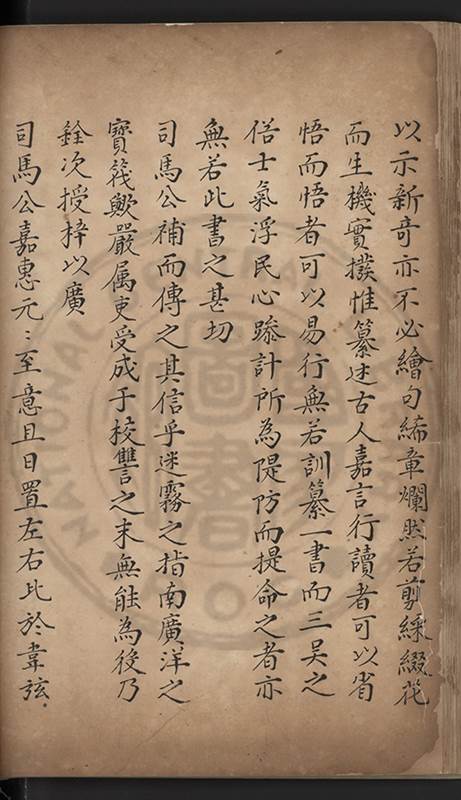 以示新奇亦不必繪句絺章爛然若剪綵綴花
而生機實撲惟纂述古人嘉言行讀者可以省
悟而悟者可以易行無若訓纂一書而三吳之
俗士氣浮民心躁計所為隄防而提命之者亦
無若此書之甚切
司馬公補而傳之其信乎迷霧之指南廣洋之
寶筏歟嚴属吏受成于校讐之末無能為後乃
銓次授梓以廣
司馬公嘉惠元〻至意且日置左右比於韋弦